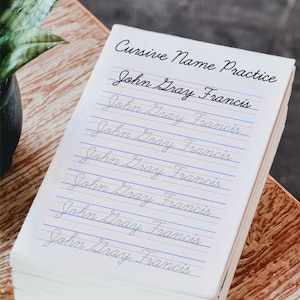 Cursive Name Practice
John Gray Francis
John Gray Francis
John Gray Francis
John Gray Francis
John Gray Francis
John Gray Francis
John Gray Francis